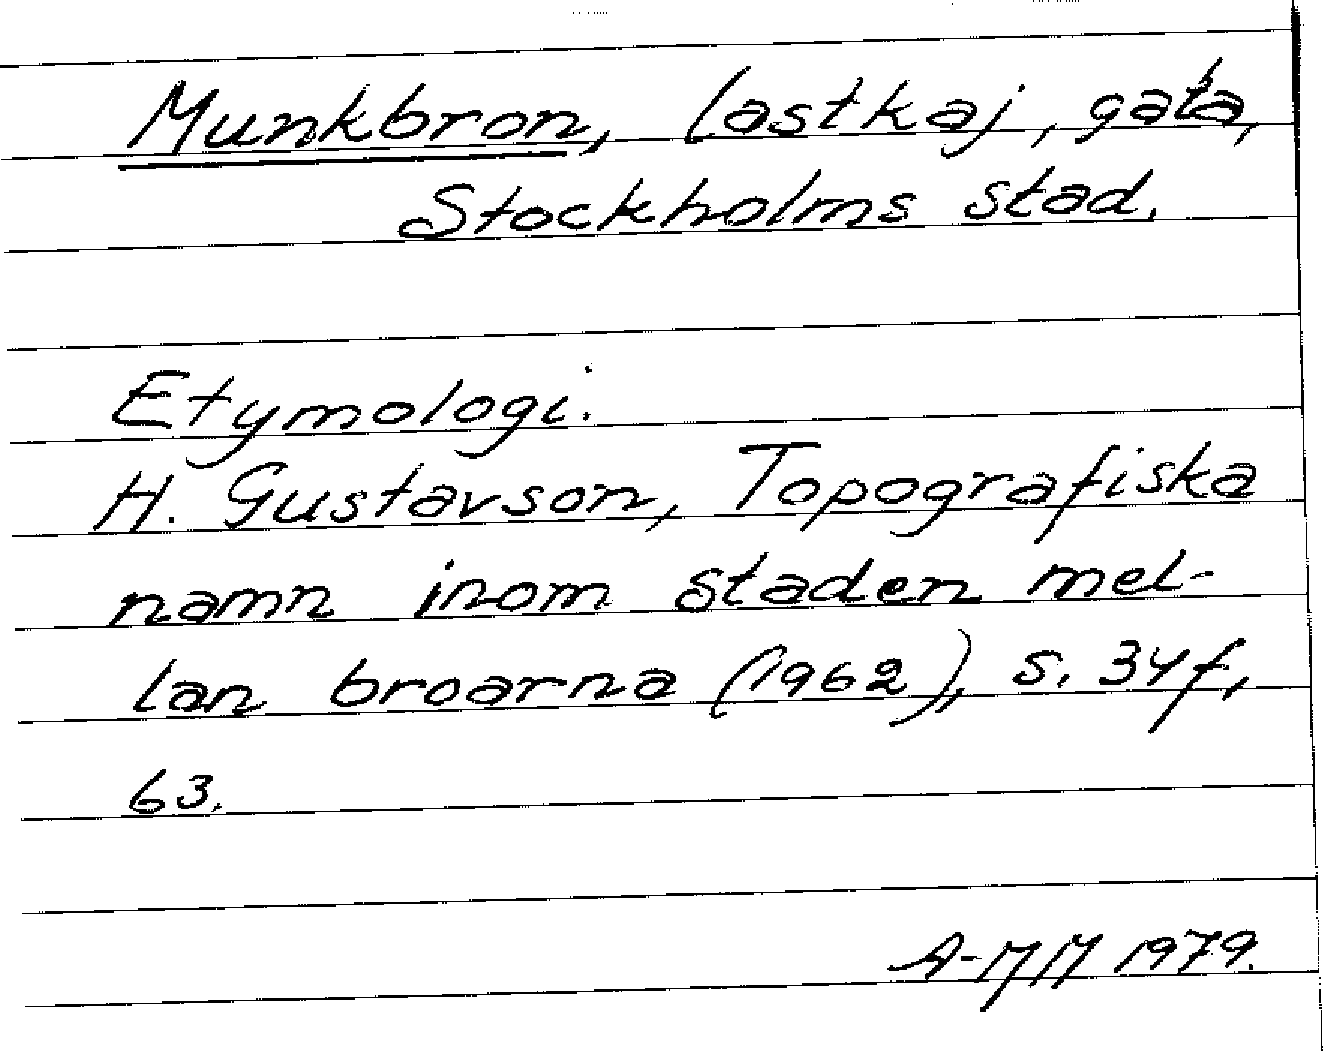 Munkbron, lastkaj, gata,
Stockholms stad.
Etymologi.
H. Gustavson, Topografiska
namn inom staden mel-
lan broarna (1962), s. 34f,
63.
A-MM 1979.